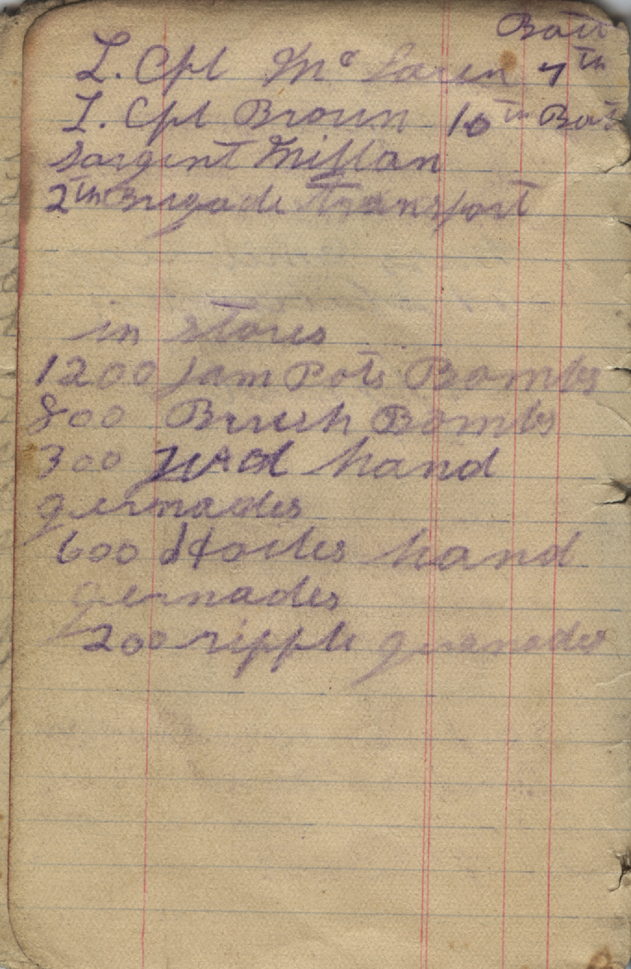 Batt
L. Cpl Mc Laren 7th
L. Cpl Broun 10th Bat
Sargent Millan
2th Brigade Transport
in stores
1200 Jam Pots Bombs
800 Brush Bombs
300 hand
gernades
600 hand
gernades
200 ripple grenades